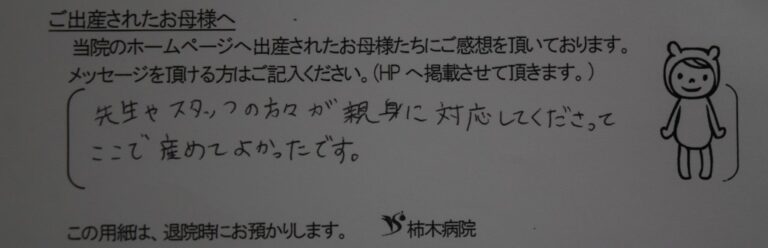 ご出産されたお母様へ
当院のホームページへ出産されたお母様たちにご感想を頂いております。
メッセージを頂ける方はご記入ください。(HPへ掲載させて頂きます。)
先生やスタッフの方々が親身に対応してくださって
ここで産めてよかったです。
この用紙は、退院時にお預かりします。 柿木病院